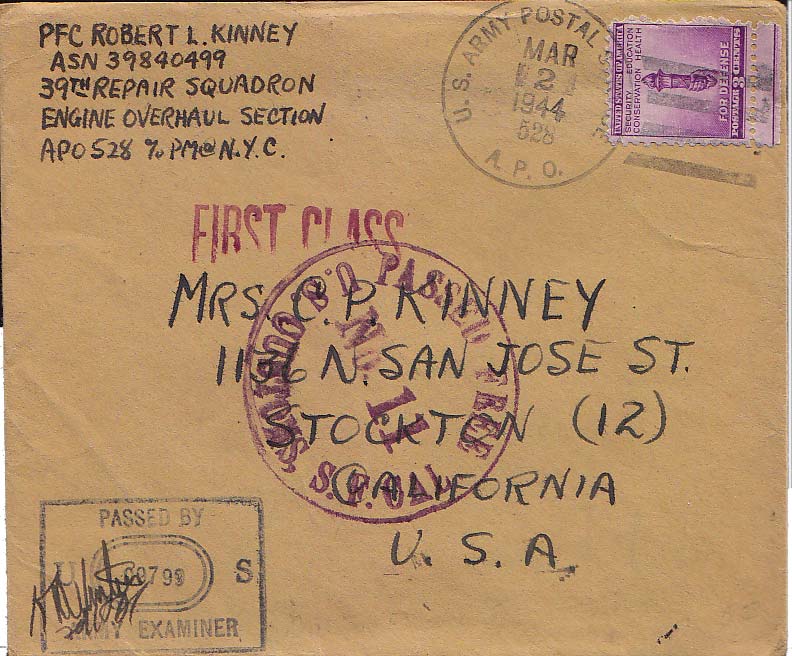 PFC ROBERT L. KINNEY
ASN 39840499
39TH REPAIR SQUADRON
ENGINE OVERHAUL SECTION
APO 528 % PM@N.Y.C.
U. S. ARMY POSTAL
MAR
2
1944
528
A. P. O.
UNITED STATES OF AMERICA
SECURITY EDUCATION
CONSERVATION HEALTH
FOR DEFENSE
POSTAGE 3 CENTS
FIRST CLASS
U.S. CUSTOMS PASSED FREE
No. 11
S.F. CAL
MRS. C. P. KINNEY
1136 N. SAN JOSE ST.
STOCKTON (12)
CALIFORNIA
U. S. A.
PASSED BY
U 00799 S
ARMY EXAMINER